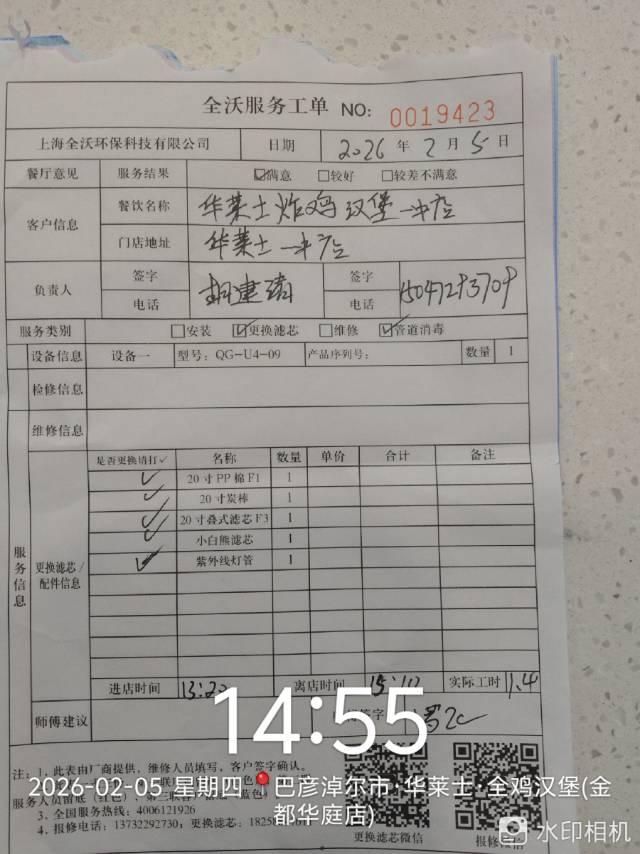 全沃服务工单 NO: 0019423
上海全沃环保科技有限公司 日期 2026 年 2 月 5 日
餐厅意见 服务结果 ☑满意 □较好 □较差不满意
客户信息 餐饮名称 华莱士炸鸡汉堡一中店
门店地址 华莱士一中店
负责人 签字 胡建靖 签字
电话 电话 15047293709
服务类别 □安装 ☑更换滤芯 □维修 ☑管道消毒
设备信息 设备一 型号: QG-U4-09 产品序列号: 数量 1
检修信息
维修信息
服务信息
更换滤芯/配件信息
是否更换请打✓ 名称 数量 单价 合计 备注
✓ 20寸PP棉F1 1
✓ 20寸炭棒 1
✓ 20寸叠式滤芯F3 1
✓ 小白熊滤芯 1
✓ 紫外线灯管 1
进店时间 13:20 离店时间 15:10 实际工时 1.4
师傅建议 签字
14:55
注: 1、此表由厂商提供，维修人员填写，客户签字确认。
2026-02-05 星期四 巴彦淖尔市·华莱士·全鸡汉堡(金都华庭店)
3、全国服务热线: 4006121926
4、报修电话: 13732292730; 更换滤芯: 1825
更换滤芯微信 报修微信
水印相机